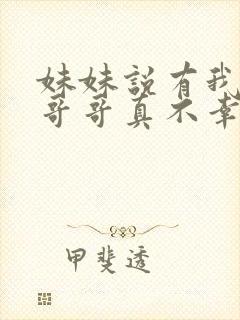 妹妹説有我
哥哥真不幸
甲斐透